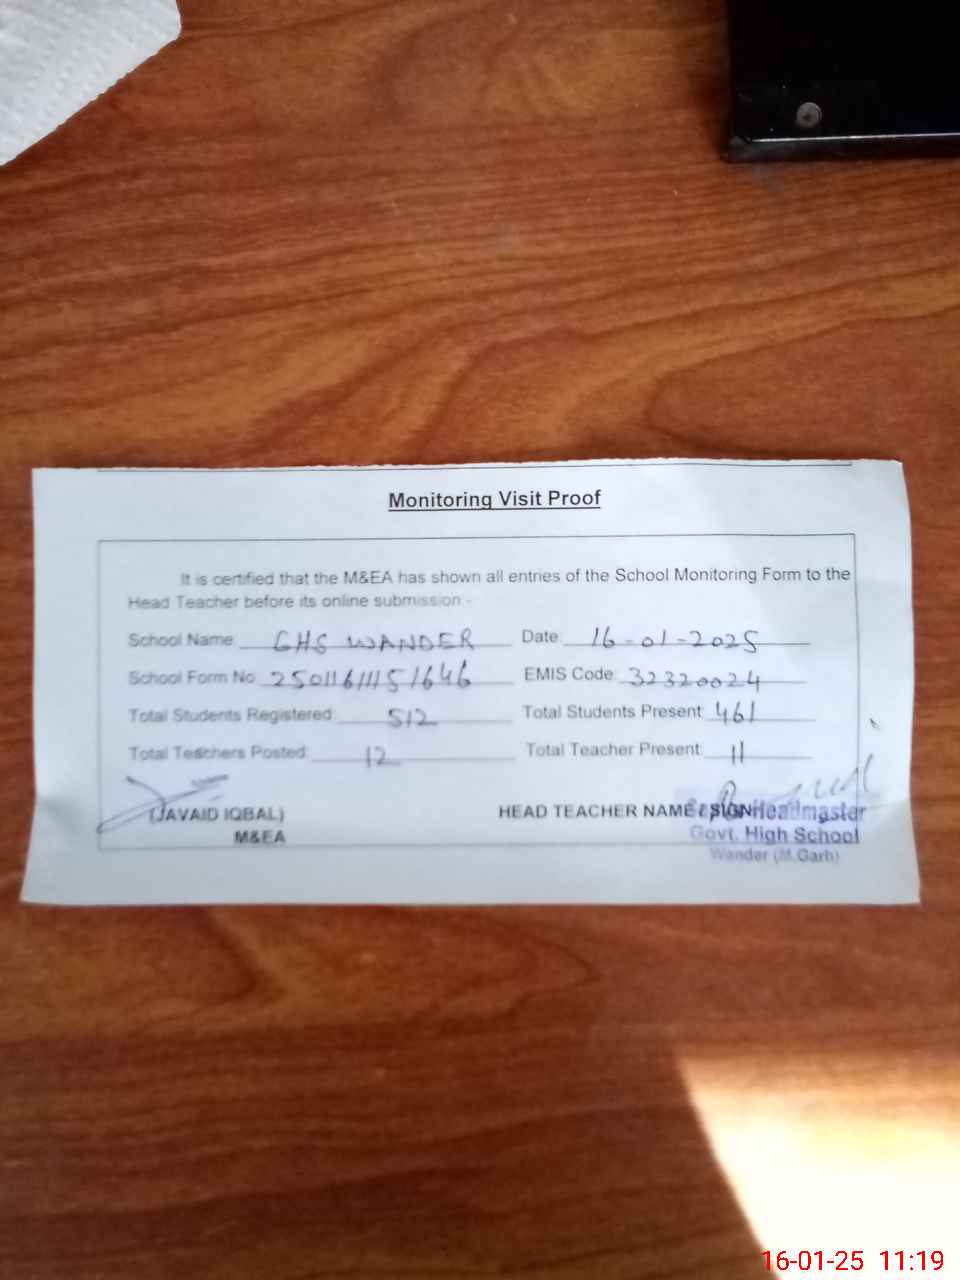 Monitoring Visit Proof
It is certified that the M&EA has shown all entries of the School Monitoring Form to the
Head Teacher before its online submission:-
School Name: GHS WANDER Date: 16-01-2025
School Form No: 25011611151646 EMIS Code: 32320024
Total Students Registered: 512 Total Students Present: 461
Total Teachers Posted: 12 Total Teacher Present: 11
(JAVAID IQBAL) HEAD TEACHER NAME & SIGN Headmaster
M&EA Govt. High School
Wander (M.Garh)
16-01-25 11:19